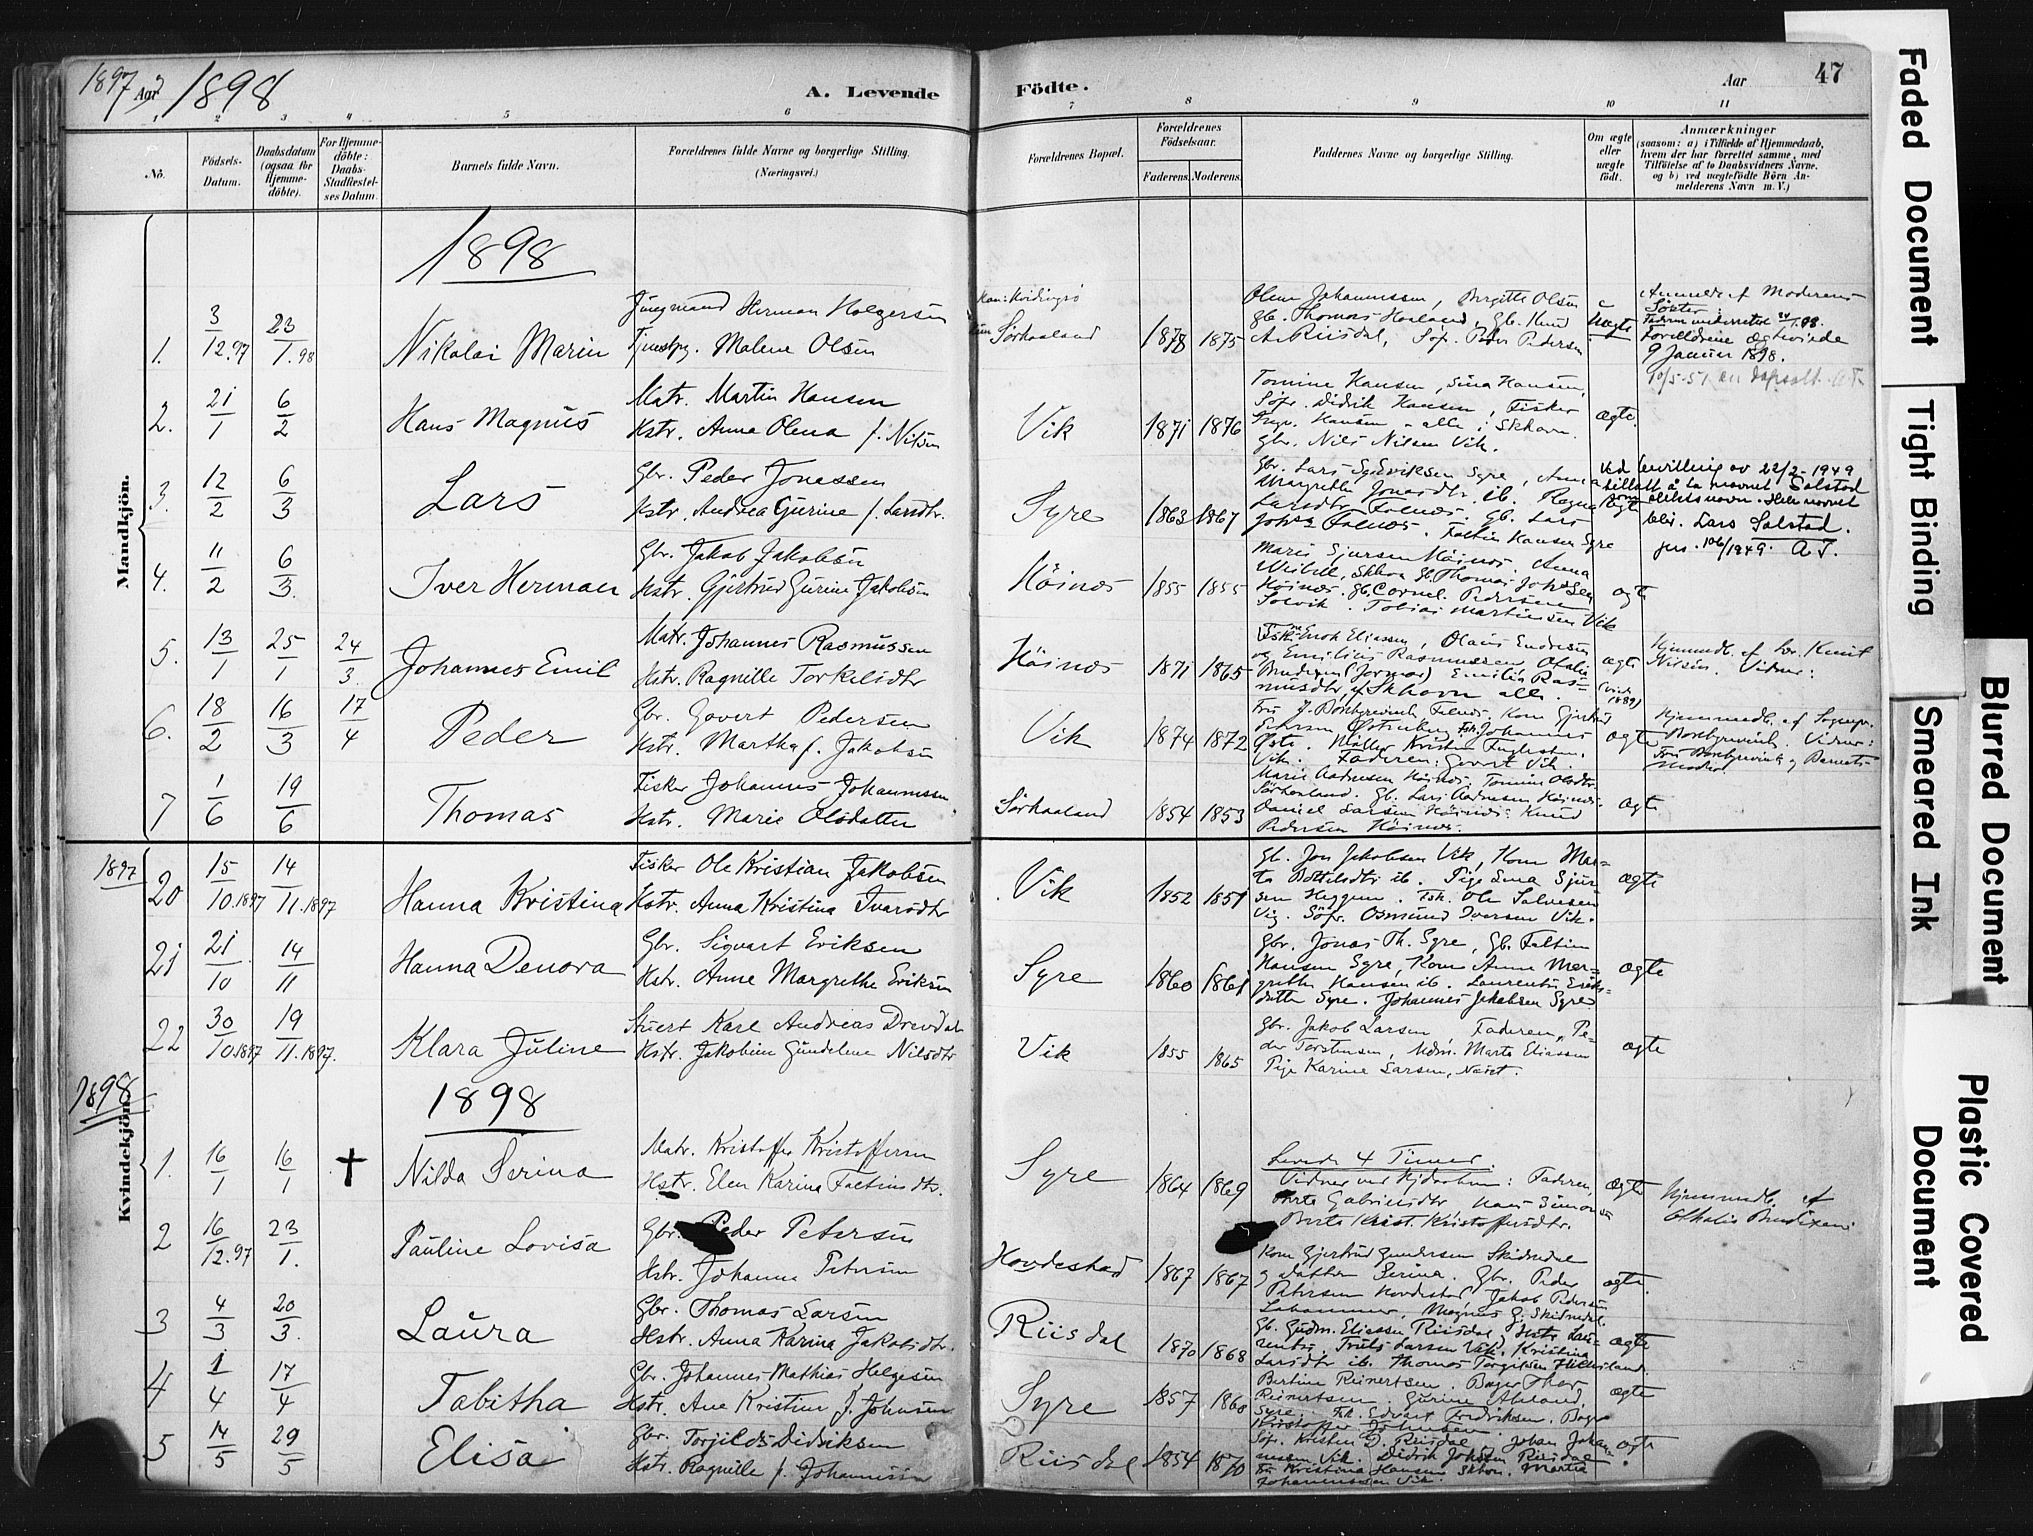 1897 Aar 1898
A. Levende
Födte.
Aar
47
1 2 3 4 5 6 7 8 9 10 11
No.
Födsels-
Datum.
Daabsdatum
(ogsaa for
Hjemme-
döbte).
For Hjemme-
döbte:
Daabs-
Stadfæstel-
ses Datum.
Barnets fulde Navn.
Forældrenes fulde Navne og borgerlige Stilling.
(Næringsvei.)
Forældrenes Bopæl.
Forældrenes
Födselsaar.
Faderens. Moderens.
Faddernes Navne og borgerlige Stilling.
Om ægte
eller
uægte
födt.
Anmærkninger
(saasom: a) i Tilfælde af Hjemmedaab,
hvem der har forrettet samme, med
Tilföielse af to Daabsvidners Navne.
og b) ved uægtefödte Börn An-
melderens Navn m. V.)
Mandkjön.
1898
1. 3/12.97 23/1.98 Nikolai Marin
Jungmand Herman Holgersen
Tjenstpg. Malene Olsen
Sørhaaland 1878 1875
Olene Johannessen, Birgitte Olsen
gb. Thomas Haaland, Gb. Knud
A. Riisdal, Söf. Peder Pedersen
Uægte
Anmeldt af Moderens
Söster
Forældrene ægteviede
9 Januar 1898.
2. 21/1 6/2 Hans Magnus
Matr. Martin Hansen
Hstr. Anna Olena f. Nilsen
Vik 1871 1876
Tomine Hansen, Sina Hansen,
Söfr. Didrik Hansen, Fisker
Hansen - alle i Skhavn.
Gbr. Nils Nilsen Vik.
ægte.
3. 12/2 6/3 Lars
Gbr. Peder Jonassen
Hstr. Andrea Gurine f. Larsdtr.
Syre 1863 1867
Gbr. Lars Syre, Anna
Margrethe Jonasdtr. ib. Ragna
Larsdtr Falnes. Gb. Lars
Johs. Falnes. Faltin Hansen Syre
ægte
Ved bevilling av 22/2-1949
tillatt å ta navnet Solstad
som slektsnavn. Hele navnet
blir. Lars Solstad.
jrs. 106/1949. A.T.
4. 11/2 6/3. Iver Herman
Gbr. Jakob Jakobsen
Hstr. Gjertrud Gurine Jakobsen
Höines 1855 1855
Maris Sjursen Höines. Anna
Skhvn Gb. Thomas Johsen
Höines. Gb. Cornel. Pedersen
Solvik. Tobias Martinsen Vik
ægte
5. 13/1 25/1 24/3. Johannes Emil
Matr. Johannes Rasmussen
Hstr. Ragnille Torkelsdtr
Höines 1871 1865
Enok Eliassen, Olaus Endresen
og Emilius Rasmussen Othalie
Bendixen (Jormor) Emilie Ras-
musdtr, af Skhavn alle.
ægte
Hjemmedb. af Lr. Knut
Nilsen. Vidner:
6. 18/2 16/3 17/4 Peder
Gbr. Govert Pedersen
Hstr. Martha f. Jakobsen
Vik 1874 1872
Vik. Faderen: Govert Vik.
ægte
Hjemmedb. af Sognepr.
7 1/6 19/6 Thomas
Fisker Johannes Johannessen
Hstr. Marie Olsdatter
Sörhaaland 1854 1853
Marie Aadnesen Höines, Tomine Olsdtr
Sørhaaland. Gb. Lars Aadnesen Höines.
Daniel Larsen Höines. Knud
Pedersen Höines.
ægte
1897
20 15/10.1897 14/11.1897 Hanna Kristina
Fisker Ole Kristian Jakobsen
Hstr. Anna Kristina Ivarsdtr
Vik 1852 1851
Gb. Jon Jakobsen Vik, Kone Mar-
ta Bottelsdtr ib. Pige Sina Sjur-
sen Heggem. Fsk. Ole Salvesen
Vig. Söfr. Osmund Iversen Vik.
ægte
21 21/10 14/11 Hanna Denora
Gbr. Sigvart Eriksen
Hstr. Anne Margrethe Eriksen
Syre 1860 1861
Gbr. Jonas Th. Syre, Gb. Faltin
Hansen Syre, Kone Anne Mar-
grethe Hansen ib. Laurentse Eriks-
datter Syre. Johannes Jakobsen Syre
ægte
22 30/10.1897 19/11.1897. Klara Juline
Stuert Karl Andreas Drevdal
Hstr. Jakobine Gundelene Nilsdtr
Vik 1855 1865
Gbr. Jakob Larsen Faderen, Pe-
der Torstensen, Mdm. Marta Eliassen
Pige Karine Larsen, Næset.
ægte
1898
Kvindekjön.
1898
1. 16/1 16/1 † Nilda Serina
Matr. Kristoffer Kristoffersen
Hstr. Elen Karina Faltinsdtr.
Syre 1864 1869
Levede 4 Timer.
Vidner ved Hjdaaben: Faderen,
Berte Gabrielsdtr Hans Simonsen
Berte Krist. Kristoffersdtr.
ægte
Hjemmedb. af
Othalie Bendixen
2 16/12.97 23/1. Pauline Lovisa
Gbr. Peder Petersen
Hstr. Johanna Petersen
Hovdestad 1867 1867
Kone Gjertrud Gundersen Skidnedal
og datter Serina. Gbr. Peder
Petersen Hovdestad, Jakob Pedersen
Lahammer, Magnus G. Skidnedal.
ægte.
3 4/3 20/3. Laura
Gbr. Thomas Larsen
Hstr. Anna Karina Jakobsdtr.
Riisdal 1870 1868
Gb. Gudm. Eliassen Riisdal, Hstr. Lau-
rentse. Truls Larsen Vik, Kristina
Larsdtr ib. Thomas Torgilsen
ægte
4 1/4 17/4 Tabitha
Gbr. Johannes Mathias Helgesen
Hstr. Ane Kristine J. Johnsen
Syre 1857 1860
Bertine Reinertsen. Bager Thor
Reinertsen. Gurine Aaland,
Syre. Fsk. Edvart Fredriksen. Bager
Kristoffer Johnsen.
ægte
5 14/5 29/5 Elisa
Gbr. Torjilds Didriksen
Hstr. Ragnille f. Johannessen
Riisdal 1854 1870
Söfr. Kristen D. Riisdal, Johan Johan-
nessen Vik. Didrik Johnsen Riisdal
Kristina Hansen Skhvn. Martha
Johannessen Vik.
ægte
Faded Document
Tight Binding
Smeared Ink
Blurred Document
Plastic Covered
Document